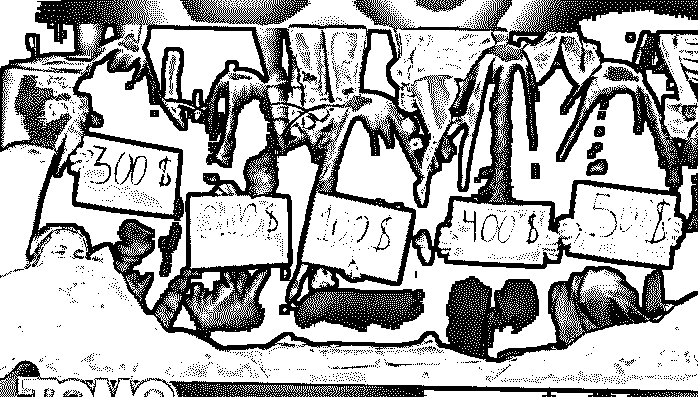 300 $
100 $
400 $
500 $
TOMO